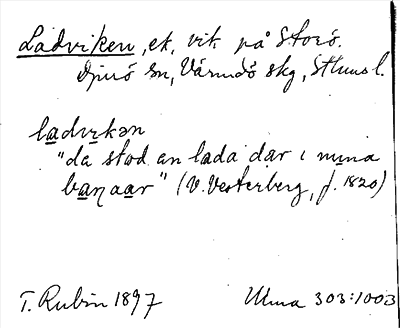 Ladviken, ek, vik på Storö.
Djurö sn, Värmdö skg, Sthms l.
ladvikən
"da stod en lada dar i mina
baṇaar" (V. Vesterberg, f. 1820)
T. Rubin 1897 Ulma 303:1003